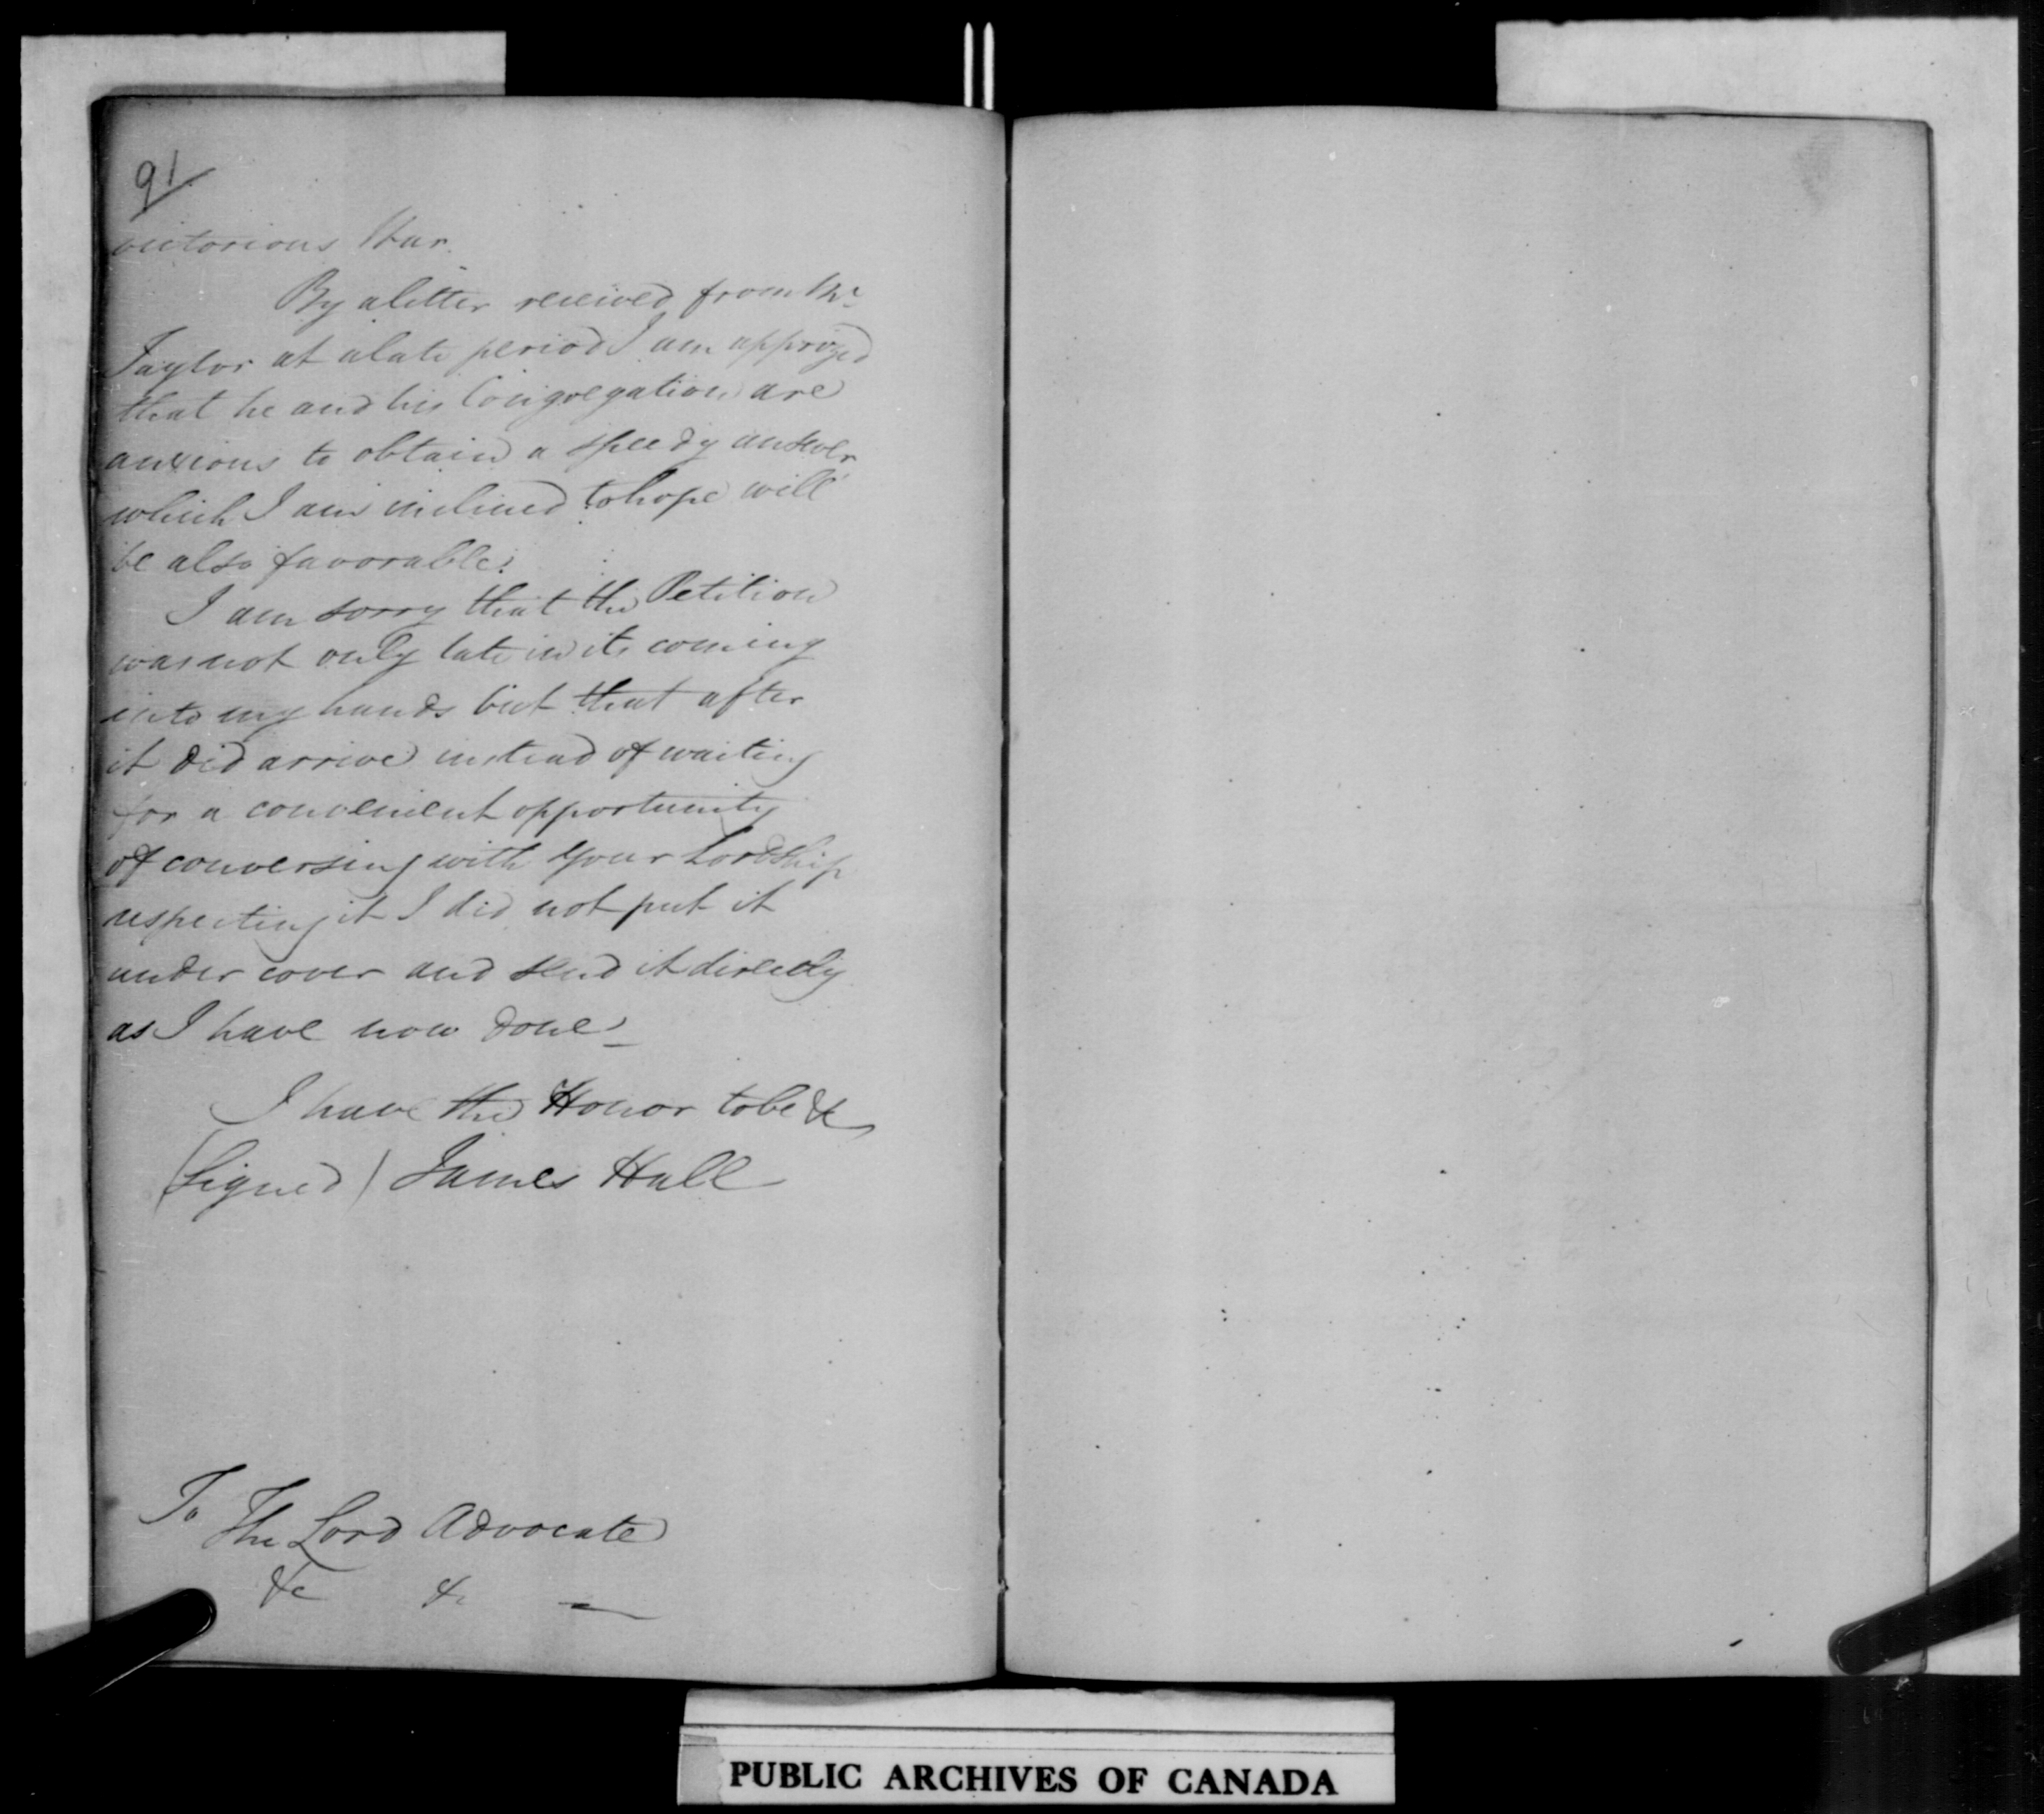 91
victorious War.
By a letter received from Mr
Taylor at a late period I am apprized
that he and his Congregation are
anxious to obtain a speedy answer
which I am inclined to hope will
be also favorable.
I am sorry that the Petition
was not only late in its coming
into my hands but that after
it did arrive instead of waiting
for a convenient opportunity
of conversing with your Lordship
respecting it I did not put it
under cover and send it directly
as I have now done_
I have the Honor to be &c
(Signed) James Hall
To
The Lord Advocate
&c &c
PUBLIC ARCHIVES OF CANADA